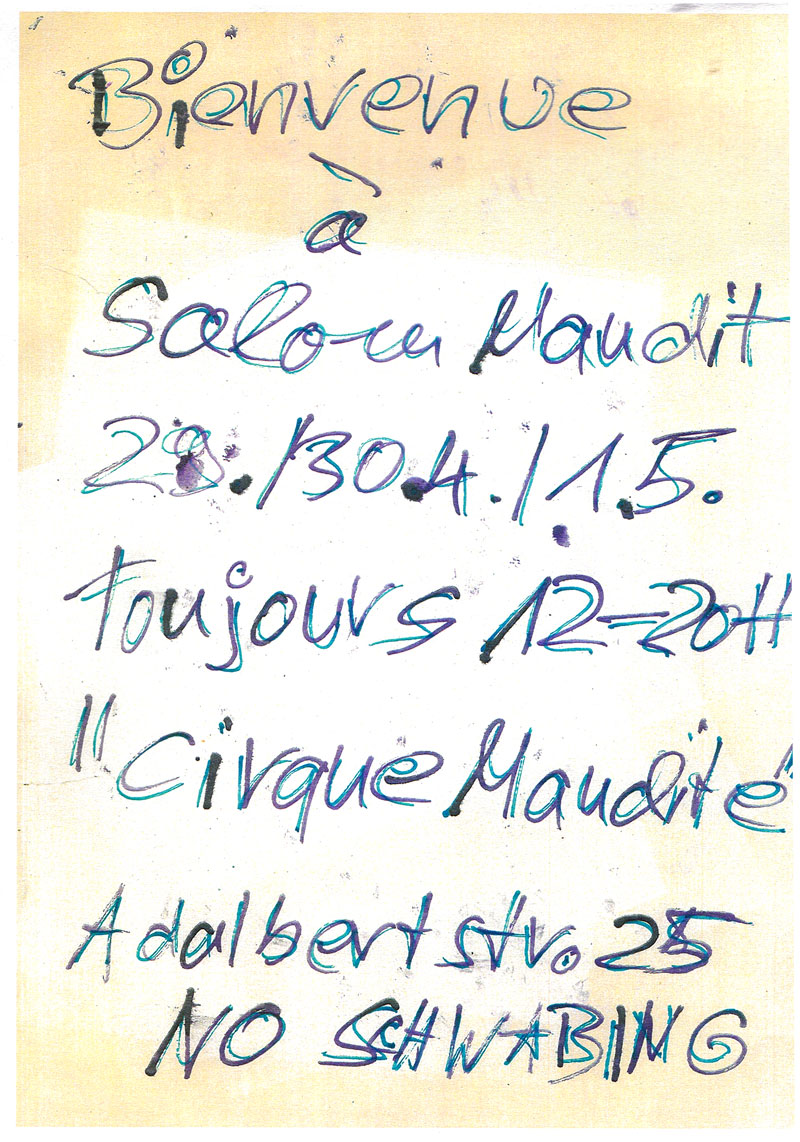 Bienvenue
à
Salon Maudit
29./30.4./1.5.
toujours 12-20H
"Cirque Maudite"
Adalbertstr. 25
NO SCHWABING